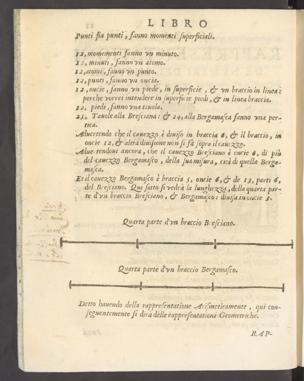 LIBRO
Punti fia punti, fanno momenti superficiali.
12, momenti fanno vn minuto.
12, minuti, fanno vn atomo.
12, atomi, fanno vn punto.
12, punti, fanno vn oncia.
12, oncie, fanno vn piede, in superficie, & vn braccio in linea:
perche vorrei intendere in superficie piedi, & in linea braccia.
12, piedi, fanno vna tauola.
Tauole alla Bresciana: & 24, alla Bergamasca fanno vna per-
tica.
Aduertendo che il cauezzo è diuiso in braccia 6, & il braccio, in
oncie 12, & altra diuisione non si fà sopra il cauezzo.
che il cauezzo Bresciano è oncie 6, di più
del cauezzo Bergamasco, della sua misura, cioè di quella Berga-
masca.
Et il cauezzo Bergamasco è braccia 5, oncie 6, & de 13, parti 6,
del Bresciano. Qui sotto si vedrà la lunghezza, della quarta par-
te d'vn braccio Bresciano, & Bergamasco: diuisa in oncie 3.
Quarta parte d'vn braccio Bresciano.
Quarta parte d'vn braccio Bergamasco.
Detto hauendo della rappresentatione Aritmeticamente, qui con-
seguentemente si dirà delle rappresentationi Geometriche.
RAP-